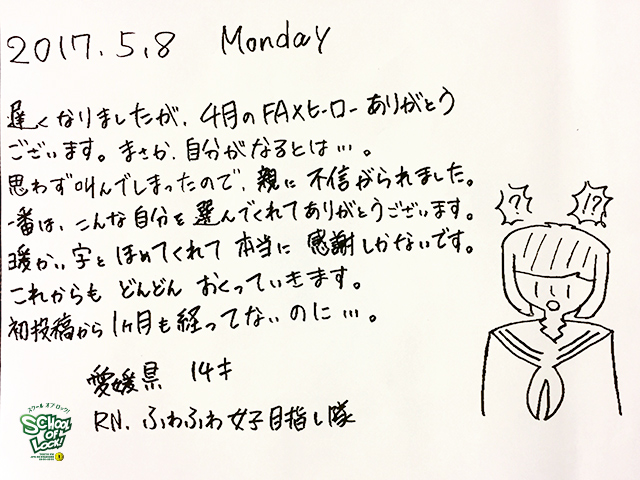 2017.5.8 Monday
遅くなりましたが、4月のFAXヒーローありがとう
ございます。まさか、自分がなるとは…。
思わず叫んでしまったので、親に不信がられました。
一番は、こんな自分を選んでくれてありがとうございます。
暖かい字とほめてくれて本当に感謝しかないです。
これからもどんどんおくっていきます。
初投稿から1ヶ月も経ってないのに…。
愛媛県 14才
RN. ふわふわ女子目指し隊
?
!?
スクールオブロック!
SCHOOL
OF
LOCK!